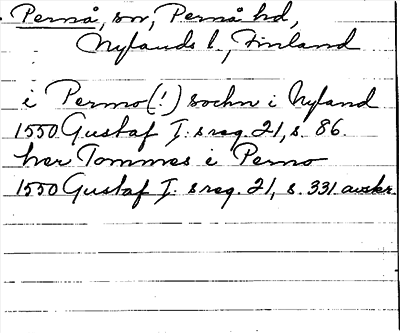 Pernå, sn, Pernå hd,
Nylands l., Finland
i Permo(!) sochn i Nyland
1550 Gustaf I: s reg. 21, s. 86.
her Tommes i Perno
1550 Gustaf I: s reg. 21, s. 331. avskr.